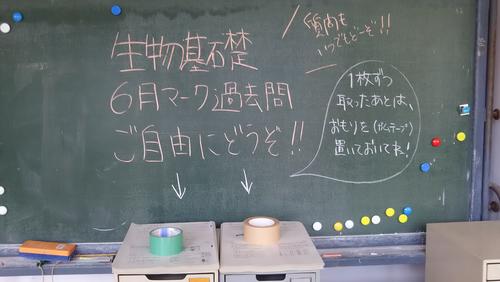 生物基礎
6月マーク過去問
ご自由にどうぞ!!
質問も
いつでもどーぞ!!
1枚ずつ
取ったあとは、
おもりを(ガムテープ)
置いておいてね!